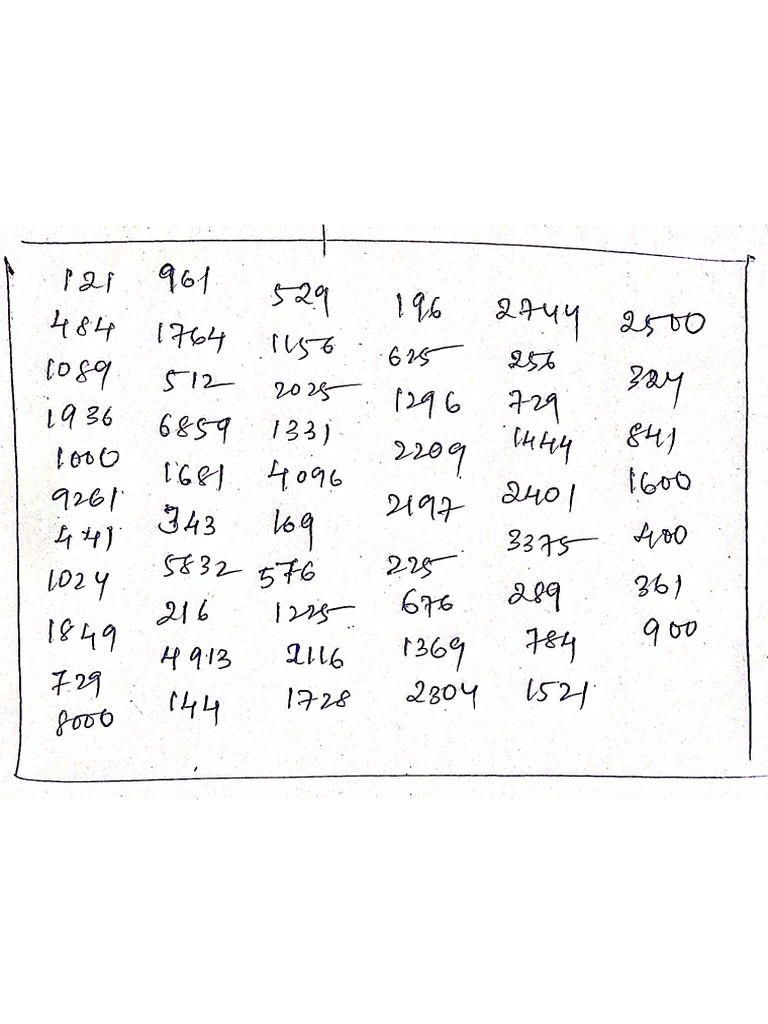 121 961 529 196 2744 2500
484 1764 1156 625 256 324
1089 512 2025 1296 729 841
1936 6859 1331 2209 1444 1600
1000 1681 4096 2197 2401 400
9261 343 169 225 3375 361
441 5832 576 676 289 900
1024 216 1225 1369 784
1849 4913 2116 2304 1521
729 144 1728
8000